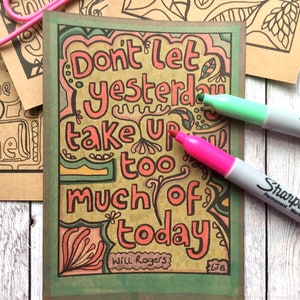 Don't let
yesterday
take up
too
much of
today
Will Rogers
Sharpie